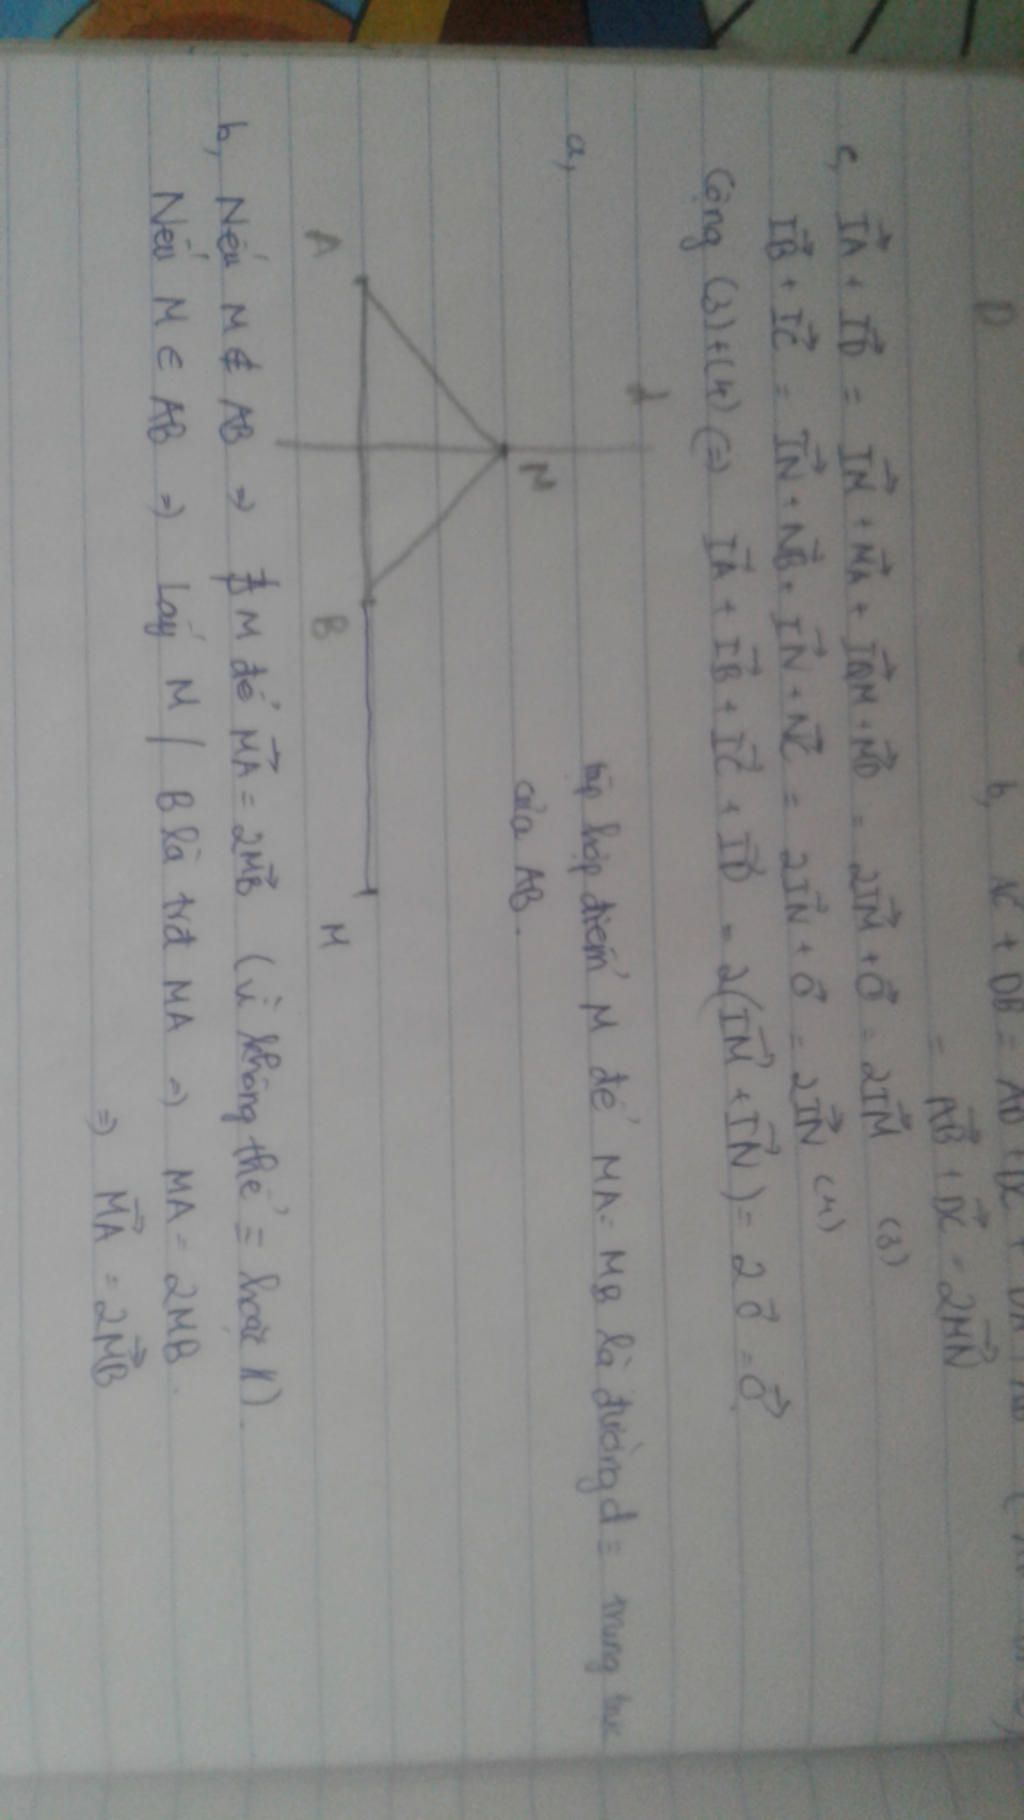 D
b, AC + DB = AD + DC +
= AB + DC = 2MN
c, IA + ID = IM + MA + IM + MD = 2IM + O = 2IM (3)
IB + IC = IN + NB + IN + NC = 2IN + O = 2IN (4)
Cộng (3)+(4) (=) IA + IB + IC + ID = 2(IM + IN) = 2O = O
a,
tập hợp điểm M để MA = MB là đường d ≡ trung trực
của AB.
d
M
A
B
M
b, Nếu M ∉ AB => ∄ M để MA = 2MB (vì không thể ≡ hoặc //).
Nếu M ∈ AB => Lấy M / B là trđ MA => MA = 2MB.
=> MA = 2MB